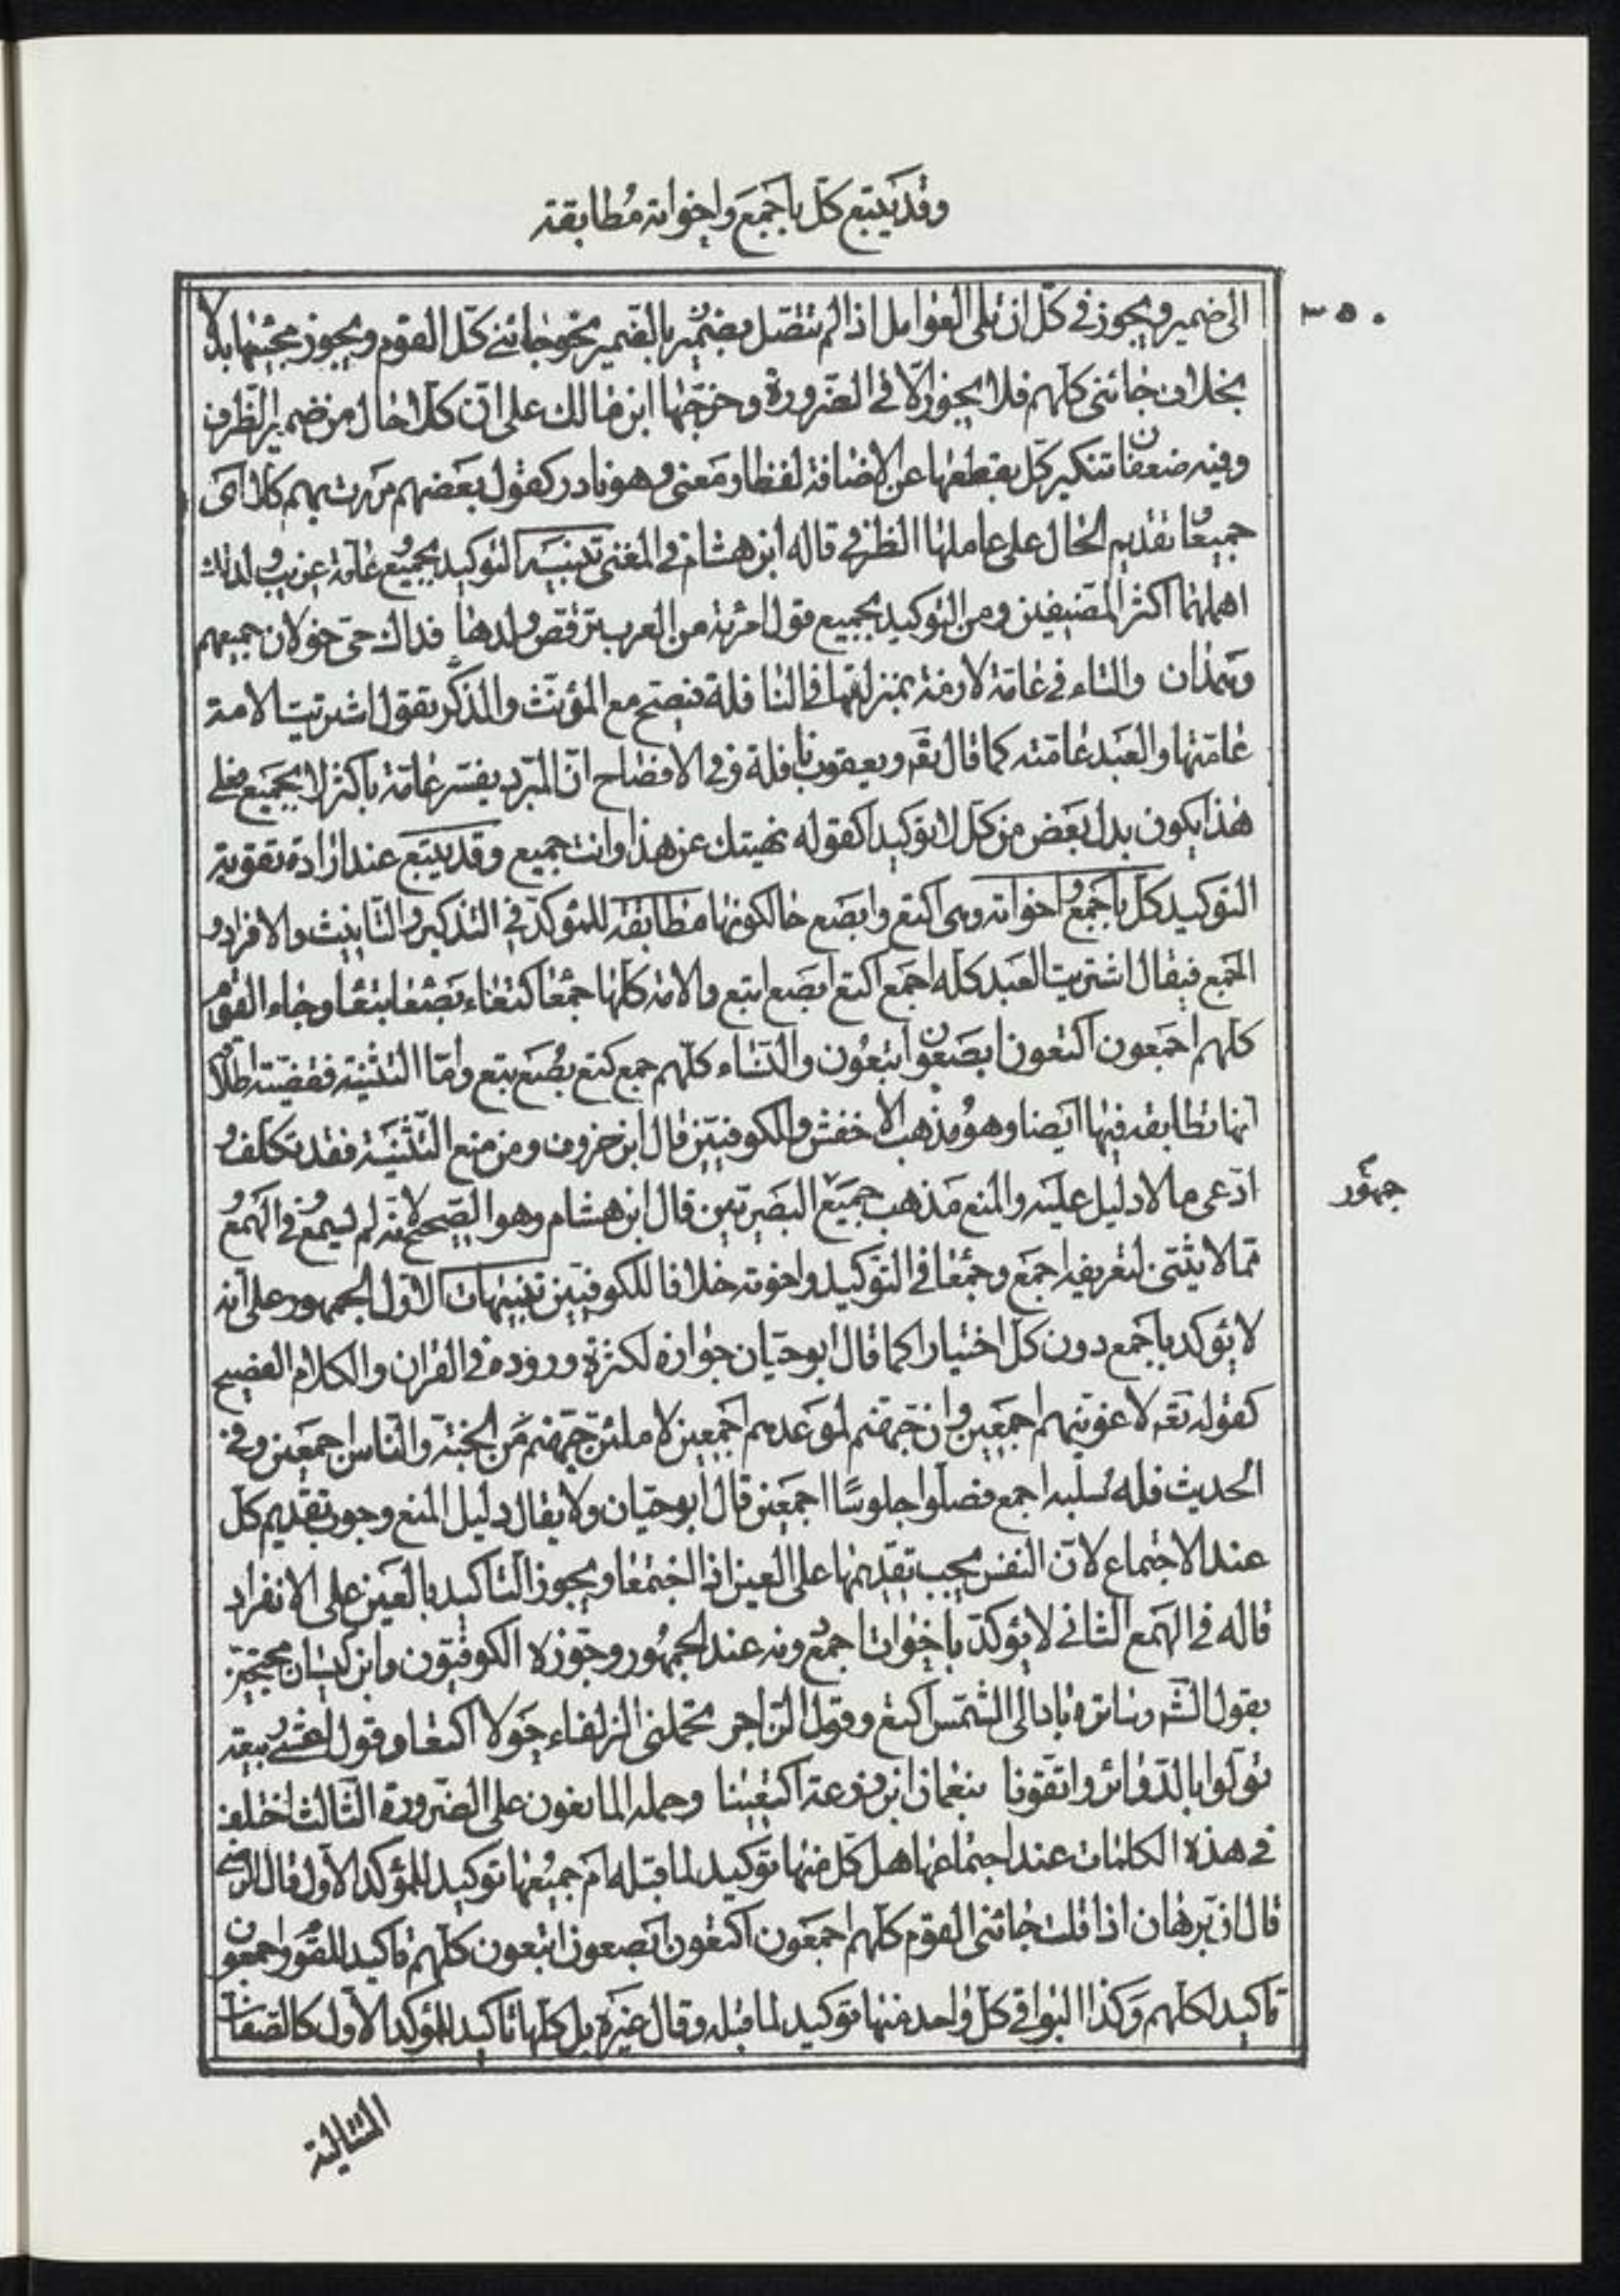 وقد يتبع كلّ باجمَع واخواته مُطابقة
٣٥٠
الى ضمير ويجوز في كلّ ان تلى العوامل اذا لم تتصل بضمير نحو جائنى كلّ القوم ويجوز مجيئها بدلا
بخلاف جائنى كلّهم فلا يجوز الّا في الضّرورة وخرّجها ابن مالك على انّ كلا حال من ضمير الظرف
وفيه ضعفان تنكير كلّ بقطعها عن الاضافة لفظا ومعنى وهو نادر كقول بعضهم مررت بهم كلا اى
جميعًا وتقديم الحال على عاملها الظرفى قاله ابن هشام في المغنى تنبيه التوكيد بجميع وعامّة غريب ولذلك
اهملهما اكثر المصنّفين ومن التوكيد بجميع قول امرئة من العرب ترقص ولدها فداك حىّ خولان جميعهم
وهمدان والتاء في عامّة لازمة بمنزلتها في النافلة فتصحّ مع المؤنّث والمذكّر تقول اشتريت الامة
عامّتها والعبد عامّته كما قال تعه ويعقوب نافلة وفي الافصاح انّ المبرّد يفسّر عامّة باكثر لا بجميع فعلى
هذا يكون بدل بعض من كلّ لا توكيدا كقوله نهيتك عن هذا وانت جميع وقد يتبع عند ارادة تقوية
التوكيد كلّ باجمع واخواته وهى اكتع وابصع حالكونها مطابقة للمؤكّد في التذكير والتّانيث والافراد و
الجمع فيقال اشتريت العبد كلّه اجمع اكتع ابصع ابتع والامة كلّها جمعا كتعاء بصعا بتعا وجاء القوم
كلهم اجمعون اكتعون ابصعون ابتعون والنّساء كلّهم جمع كتع بصع بتع وامّا التثنية فقضيّة اطلاق
انها تطابقه فيها ايضا وهو مذهب الاخفش والكوفيّين قال ابن خروف ومن منع التّثنية فقد تكلّف و
ادّعى ما لا دليل عليه والمنع مذهب جميع البصريّين قال ابن هشام وهو الصّحيح لانّه لم يسمع وفي الهمع
جمهور
ممّا لا يثنّى لتعريفه اجمع وجمعا في التوكيد واخوته خلافا للكوفيّين تنبيهات الاوّل الجمهور على انه
لا يؤكد باجمع دون كلّ اختيارا كما قال ابو حيّان جوازه لكثرة وروده في القران والكلام الفصيح
كقوله تعه لاغوينّهم اجمعين وانّ جهنّم لموعدهم اجمعين لاملئنّ جهنّم من الجنّة والنّاس اجمعين وفي
الحديث فله سلبه اجمع فصلّوا جلوسًا اجمعين قال ابو حيّان ولا يقال دليل المنع وجوب تقديم كلّ
عند الاجتماع لانّ النفس يجب تقديمها على العين اذا اجتمعا ويجوز التاكيد بالعين على الانفراد
قاله في الهمع الثانى لا يؤكدّ باخوات اجمع دونه عند الجمهور وجوّزه الكوفيّون وابن كيسان محتجّين
بقول الشّ وسائره باد الى الشّمس اكتع وقول الرّاجر تحملنى الزلفاء حولا اكتعا وقول اعشى ربيعة
تولّوا بالدّوائر واتّقونا بنعمان ابن زرعة اكتعينا وحمله المانعون على الضّرورة الثّالث اختلف
في هذه الكلمات عند اجتماعها هل كلّ منها توكيد لما قبله ام جميعها توكيد للمؤكّد الاول قال الرضى
قال ابن برهان اذا قلت جائنى القوم كلّهم اجمعون اكتعون ابصعون ابتعون كلّهم تاكيد للقوم واجمعون
تاكيد لكلّهم وكذا البواقى كلّ واحد منها توكيد لما قبله وقال غيره بل كلّها تاكيد للمؤكد الاول كالصّفات
المتتالية